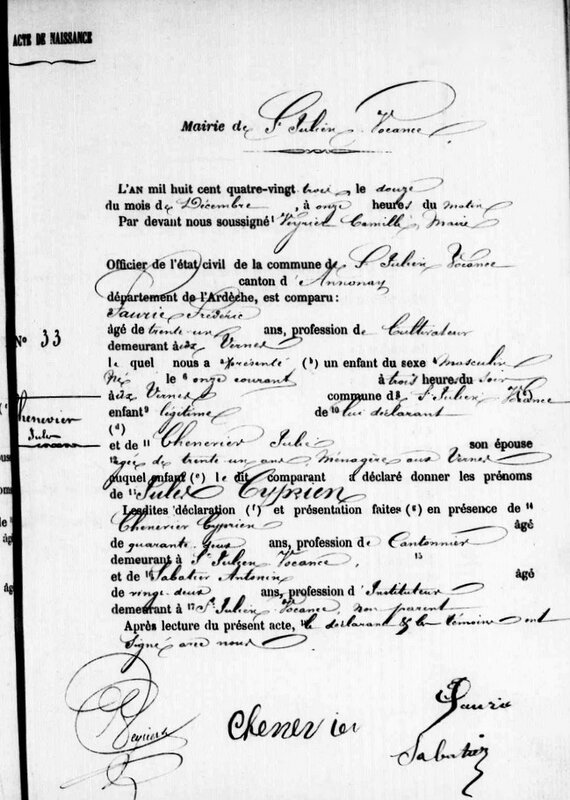 ACTE DE NAISSANCE
Mairie de St Julien Vocance
L'AN mil huit cent quatre-vingt trois le douze
du mois de Décembre, à onze heures du matin
Par devant nous soussigné Veyrier Camille Maire
Officier de l'état civil de la commune de St Julien Vocance
canton d'Annonay
département de l'Ardèche, est comparu:
Saurie Frédéric
âgé de trente un ans, profession de Cultivateur
demeurant à Vernes
le quel nous a présenté (b) un enfant du sexe masculin
Né le onze courant à trois heure du soir
à Vernes commune de St Julien Vocance (c)
enfant légitime de 10 lui déclarant
(d)
et de 11 Chenevier Julie son épouse
âgée de trente un ans Ménagère aux Vernes
auquel enfant (e) le dit comparant a déclaré donner les prénoms
de Jules Cyprien
Lesdites déclaration (f) et présentation faites (g) en présence de 14
Chenevier Cyprien âgé
de quarante deux ans, profession de Cantonnier
demeurant à St Julien Vocance, 15
et de 16 Sabatier Antonin âgé
de vingt deux ans, profession d'Instituteur
demeurant à 17 St Julien Vocance, non parent
Après lecture du présent acte, le déclarant & les témoins ont
Signé avec nous
No 33
Chenevier
Jules
Veyrier
Chenevier
Saurie
Sabatier